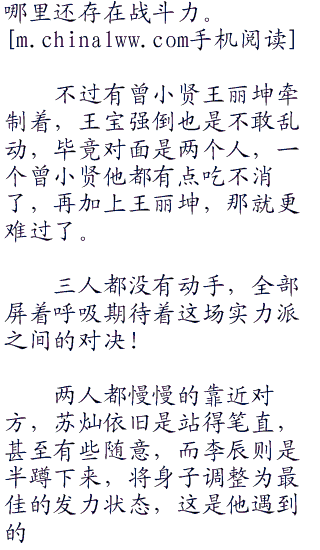 哪里还存在战斗力。
[m.china1ww.com手机阅读]
不过有曾小贤王丽坤牵
制着，王宝强倒也是不敢乱
动，毕竟对面是两个人，一
个曾小贤他都有点吃不消
了，再加上王丽坤，那就更
难过了。
三人都没有动手，全部
屏着呼吸期待着这场实力派
之间的对决！
两人都慢慢的靠近对
方，苏灿依旧是站得笔直，
甚至有些随意，而李辰则是
半蹲下来，将身子调整为最
佳的发力状态，这是他遇到
的